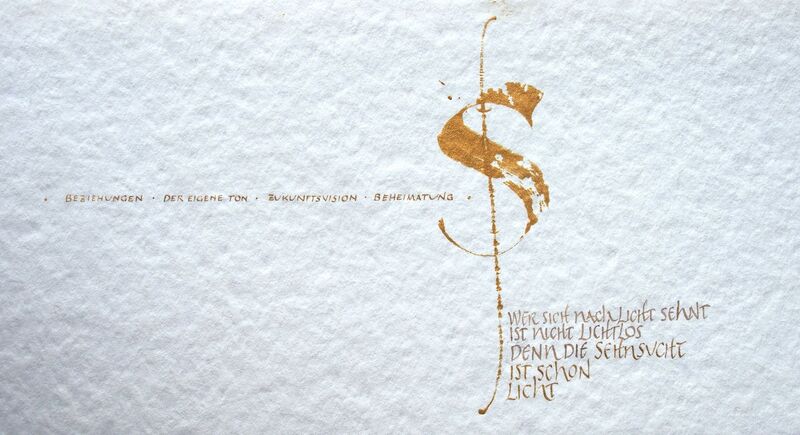 S
· BEZIEHUNGEN · DER EIGENE TON · ZUKUNFTSVISION · BEHEIMATUNG ·
WER SICH NACH LICHT SEHNT
IST NICHT LICHTLOS
DENN DIE SEHNSUCHT
IST SCHON
LICHT